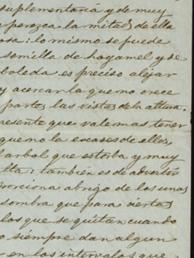 suplementaria y de muy
perezca la mitad de ella
osa: lo mismo se puede
semilla de hayamel y se
es preciso alejar
y acercar la que no crece
parte, las vistas de la
presente que vale mas tener
que no la escases de ellos,
arbol que estorba y muy
tambien es de
abrigo de los unos
sombra que para
los que se quitan cuando
o siempre dan algun
en los intervalos que